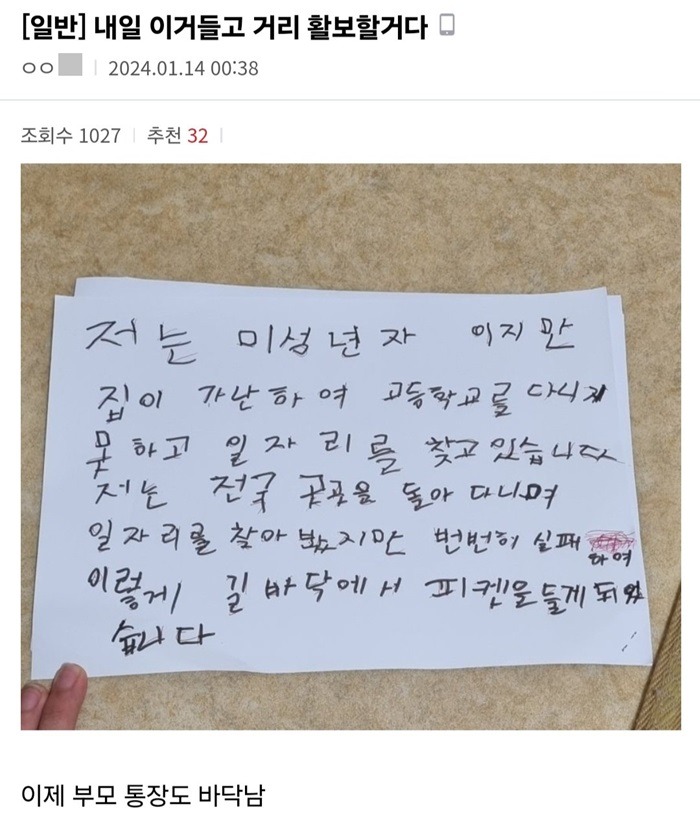 [일반] 내일 이거들고 거리 활보할거다
ㅇㅇ
2024.01.14 00:38
조회수 1027
추천 32
저는 미성년자 이지만
집이 가난하여 고등학교를 다니지
못하고 일자리를 찾고 있습니다
저는 전국 곳곳을 돌아 다니며
일자리를 찾아 봤지만 번번히 실패
하여
이렇게 길바닥에서 피켓을 들게 되었
습니다
이제 부모 통장도 바닥남